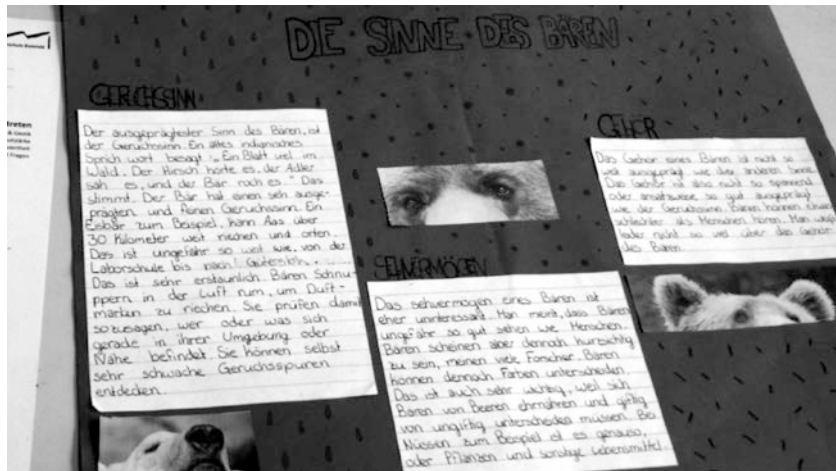 DIE SINNE DES BÄREN
GERUCHSSINN
Der ausgeprägtester Sinn des Bären, ist
der Geruchssinn. Ein altes indianisches
Sprichwort besagt: „Ein Blatt viel im
Wald. Der Hirsch hörte es, der Adler
sah es, und der Bär roch es." Das
stimmt. Der Bär hat einen seh ausge-
prägten und feinen Geruchssinn. Ein
Eisbär zum Beispiel, kann Aas über
30 Kilometer weit riechen und orten.
Das ist ungefähr so weit wie, von der
Laborschule bis nach Gütersloh.
Das ist sehr erstaunlich. Bären Schnu-
ppern in der Luft rum, um Duft-
marken zu riechen. Sie prüfen damit
sozusagen, wer oder was sich
gerade in ihrer Umgebung oder
Nähe befindet. Sie können selbst
sehr schwache Geruchsspuren
entdecken.
SEHVERMÖGEN
Das sehvermögen eines Bären ist
eher uninteressant. Man meint, dass Bären
ungefähr so gut sehen wie Menschen.
Bären scheinen aber dennoch kurzsichtig
zu sein, meinen viele Forscher. Bären
können dennoch Farben unterscheiden.
Das ist auch sehr wichtig, weil sich
Bären von Beeren ehrnähren und giftig
von ungiftig unterscheiden müssen. Bei
Nüssen zum Beispiel ist es genauso,
oder Pflanzen und sonstige Lebensmittel.
GEHÖR
Das Gehör eines Bären ist nicht so
weit ausgeprägt wie die anderen Sinne.
Das Gehör ist also nicht so spannend
oder ansatzweise so gut ausgeprägt
wie der Geruchssinn. Bären können etwas
schlechter als Menschen hören. Man weiß
leider nicht so viel über das Gehör
des Bären.
treten
Fragen